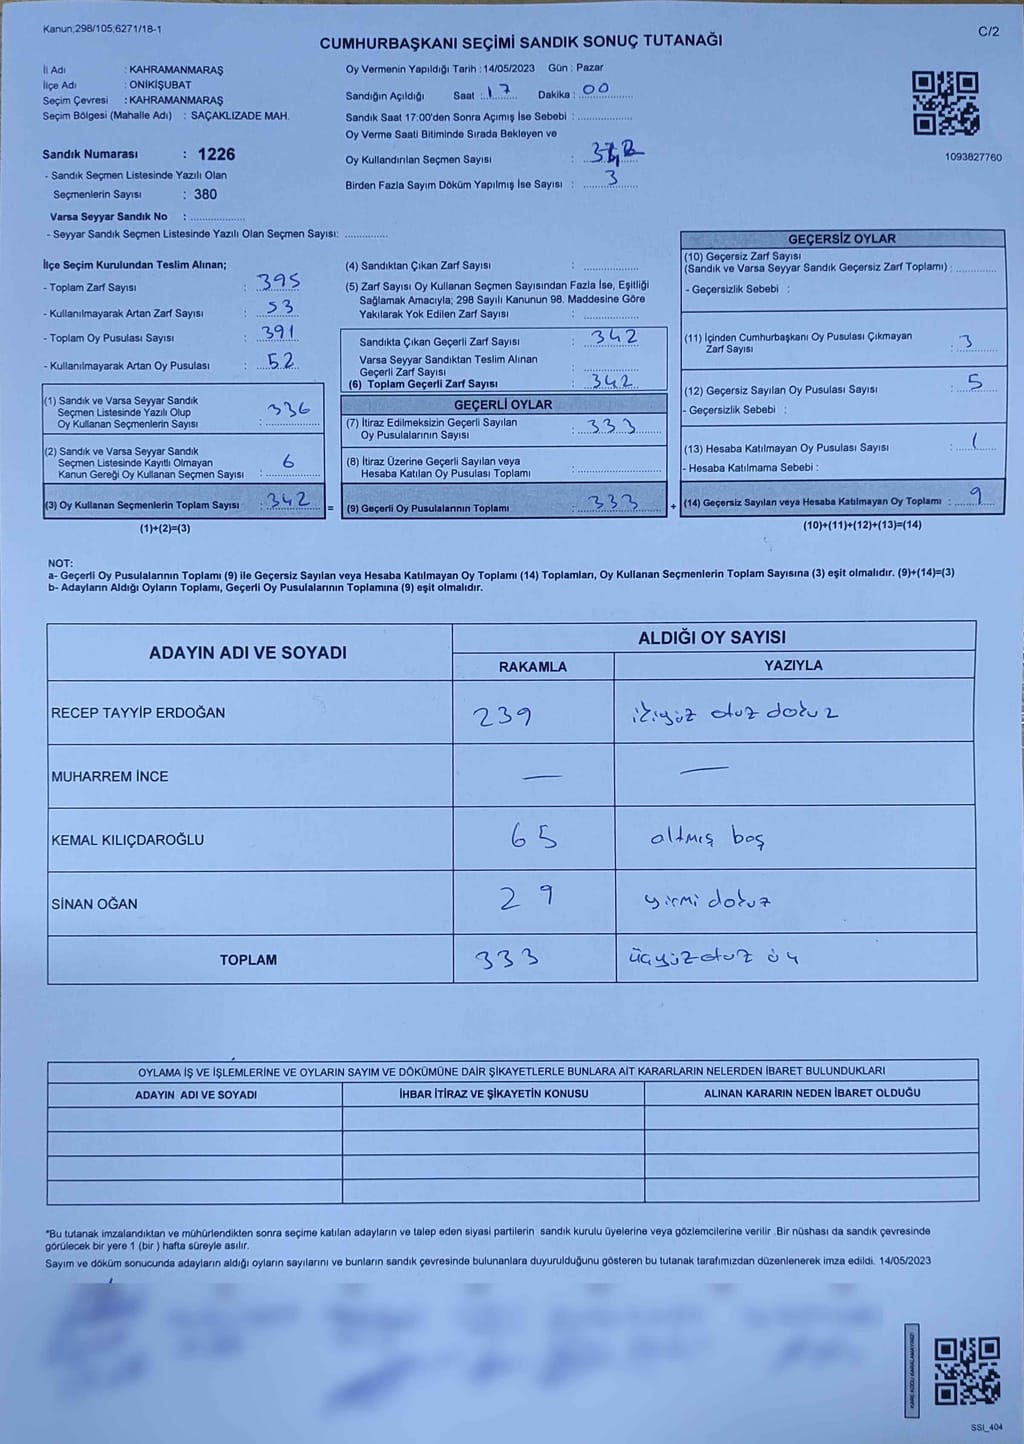 Kanun;298/105,6271/18-1
C/2
CUMHURBAŞKANI SEÇİMİ SANDIK SONUÇ TUTANAĞI
İl Adı : KAHRAMANMARAŞ
İlçe Adı : ONİKİŞUBAT
Seçim Çevresi : KAHRAMANMARAŞ
Seçim Bölgesi (Mahalle Adı) : SAÇAKLIZADE MAH.
Sandık Numarası : 1226
- Sandık Seçmen Listesinde Yazılı Olan
Seçmenlerin Sayısı : 380
Varsa Seyyar Sandık No : ..................
- Seyyar Sandık Seçmen Listesinde Yazılı Olan Seçmen Sayısı: ..............
Oy Vermenin Yapıldığı Tarih : 14/05/2023 Gün : Pazar
Sandığın Açıldığı Saat : 17 Dakika : 00
Sandık Saat 17:00'den Sonra Açımış İse Sebebi : ..................
Oy Verme Saati Bitiminde Sırada Bekleyen ve
Oy Kullandırılan Seçmen Sayısı :
Birden Fazla Sayım Döküm Yapılmış İse Sayısı : 3
1093827760
İlçe Seçim Kurulundan Teslim Alınan;
- Toplam Zarf Sayısı : 395
- Kullanılmayarak Artan Zarf Sayısı : 53
- Toplam Oy Pusulası Sayısı : 391
- Kullanılmayarak Artan Oy Pusulası : 52
(1) Sandık ve Varsa Seyyar Sandık
Seçmen Listesinde Yazılı Olup
Oy Kullanan Seçmenlerin Sayısı : 336
(2) Sandık ve Varsa Seyyar Sandık
Seçmen Listesinde Kayıtlı Olmayan
Kanun Gereği Oy Kullanan Seçmen Sayısı : 6
(3) Oy Kullanan Seçmenlerin Toplam Sayısı : 342
(1)+(2)=(3)
(4) Sandıktan Çıkan Zarf Sayısı : ..................
(5) Zarf Sayısı Oy Kullanan Seçmen Sayısından Fazla İse, Eşitliği
Sağlamak Amacıyla; 298 Sayılı Kanunun 98. Maddesine Göre
Yakılarak Yok Edilen Zarf Sayısı : ..................
Sandıkta Çıkan Geçerli Zarf Sayısı : 342
Varsa Seyyar Sandıktan Teslim Alınan
Geçerli Zarf Sayısı : ..................
(6) Toplam Geçerli Zarf Sayısı : 342
GEÇERLİ OYLAR
(7) İtiraz Edilmeksizin Geçerli Sayılan
Oy Pusulalarının Sayısı : 333
(8) İtiraz Üzerine Geçerli Sayılan veya
Hesaba Katılan Oy Pusulası Toplamı : ..................
= (9) Geçerli Oy Pusulalarının Toplamı : 333
GEÇERSİZ OYLAR
(10) Geçersiz Zarf Sayısı
(Sandık ve Varsa Seyyar Sandık Geçersiz Zarf Toplamı) : ............
- Geçersizlik Sebebi :
(11) İçinden Cumhurbaşkanı Oy Pusulası Çıkmayan
Zarf Sayısı : 3
(12) Geçersiz Sayılan Oy Pusulası Sayısı : 5
- Geçersizlik Sebebi :
(13) Hesaba Katılmayan Oy Pusulası Sayısı : 1
- Hesaba Katılmama Sebebi :
+ (14) Geçersiz Sayılan veya Hesaba Katılmayan Oy Toplamı : 9
(10)+(11)+(12)+(13)=(14)
NOT:
a- Geçerli Oy Pusulalarının Toplamı (9) ile Geçersiz Sayılan veya Hesaba Katılmayan Oy Toplamı (14) Toplamları, Oy Kullanan Seçmenlerin Toplam Sayısına (3) eşit olmalıdır. (9)+(14)=(3)
b- Adayların Aldığı Oyların Toplamı, Geçerli Oy Pusulalarının Toplamına (9) eşit olmalıdır.
ADAYIN ADI VE SOYADI
ALDIĞI OY SAYISI
RAKAMLA YAZIYLA
RECEP TAYYİP ERDOĞAN 239 ikiyüz otuz dokuz
MUHARREM İNCE — —
KEMAL KILIÇDAROĞLU 65 altmış beş
SİNAN OĞAN 29 yirmi dokuz
TOPLAM 333 üçyüz otuz üç
OYLAMA İŞ VE İŞLEMLERİNE VE OYLARIN SAYIM VE DÖKÜMÜNE DAİR ŞİKAYETLERLE BUNLARA AİT KARARLARIN NELERDEN İBARET BULUNDUKLARI
ADAYIN ADI VE SOYADI İHBAR İTİRAZ VE ŞİKAYETİN KONUSU ALINAN KARARIN NEDEN İBARET OLDUĞU
*Bu tutanak imzalandıktan ve mühürlendikten sonra seçime katılan adayların ve talep eden siyasi partilerin sandık kurulu üyelerine veya gözlemcilerine verilir .Bir nüshası da sandık çevresinde
görülecek bir yere 1 (bir ) hafta süreyle asılır.
Sayım ve döküm sonucunda adayların aldığı oyların sayılarını ve bunların sandık çevresinde bulunanlara duyurulduğunu gösteren bu tutanak tarafımızdan düzenlenerek imza edildi. 14/05/2023
KARE KODU KARALAMAYINIZ!
SSI_404